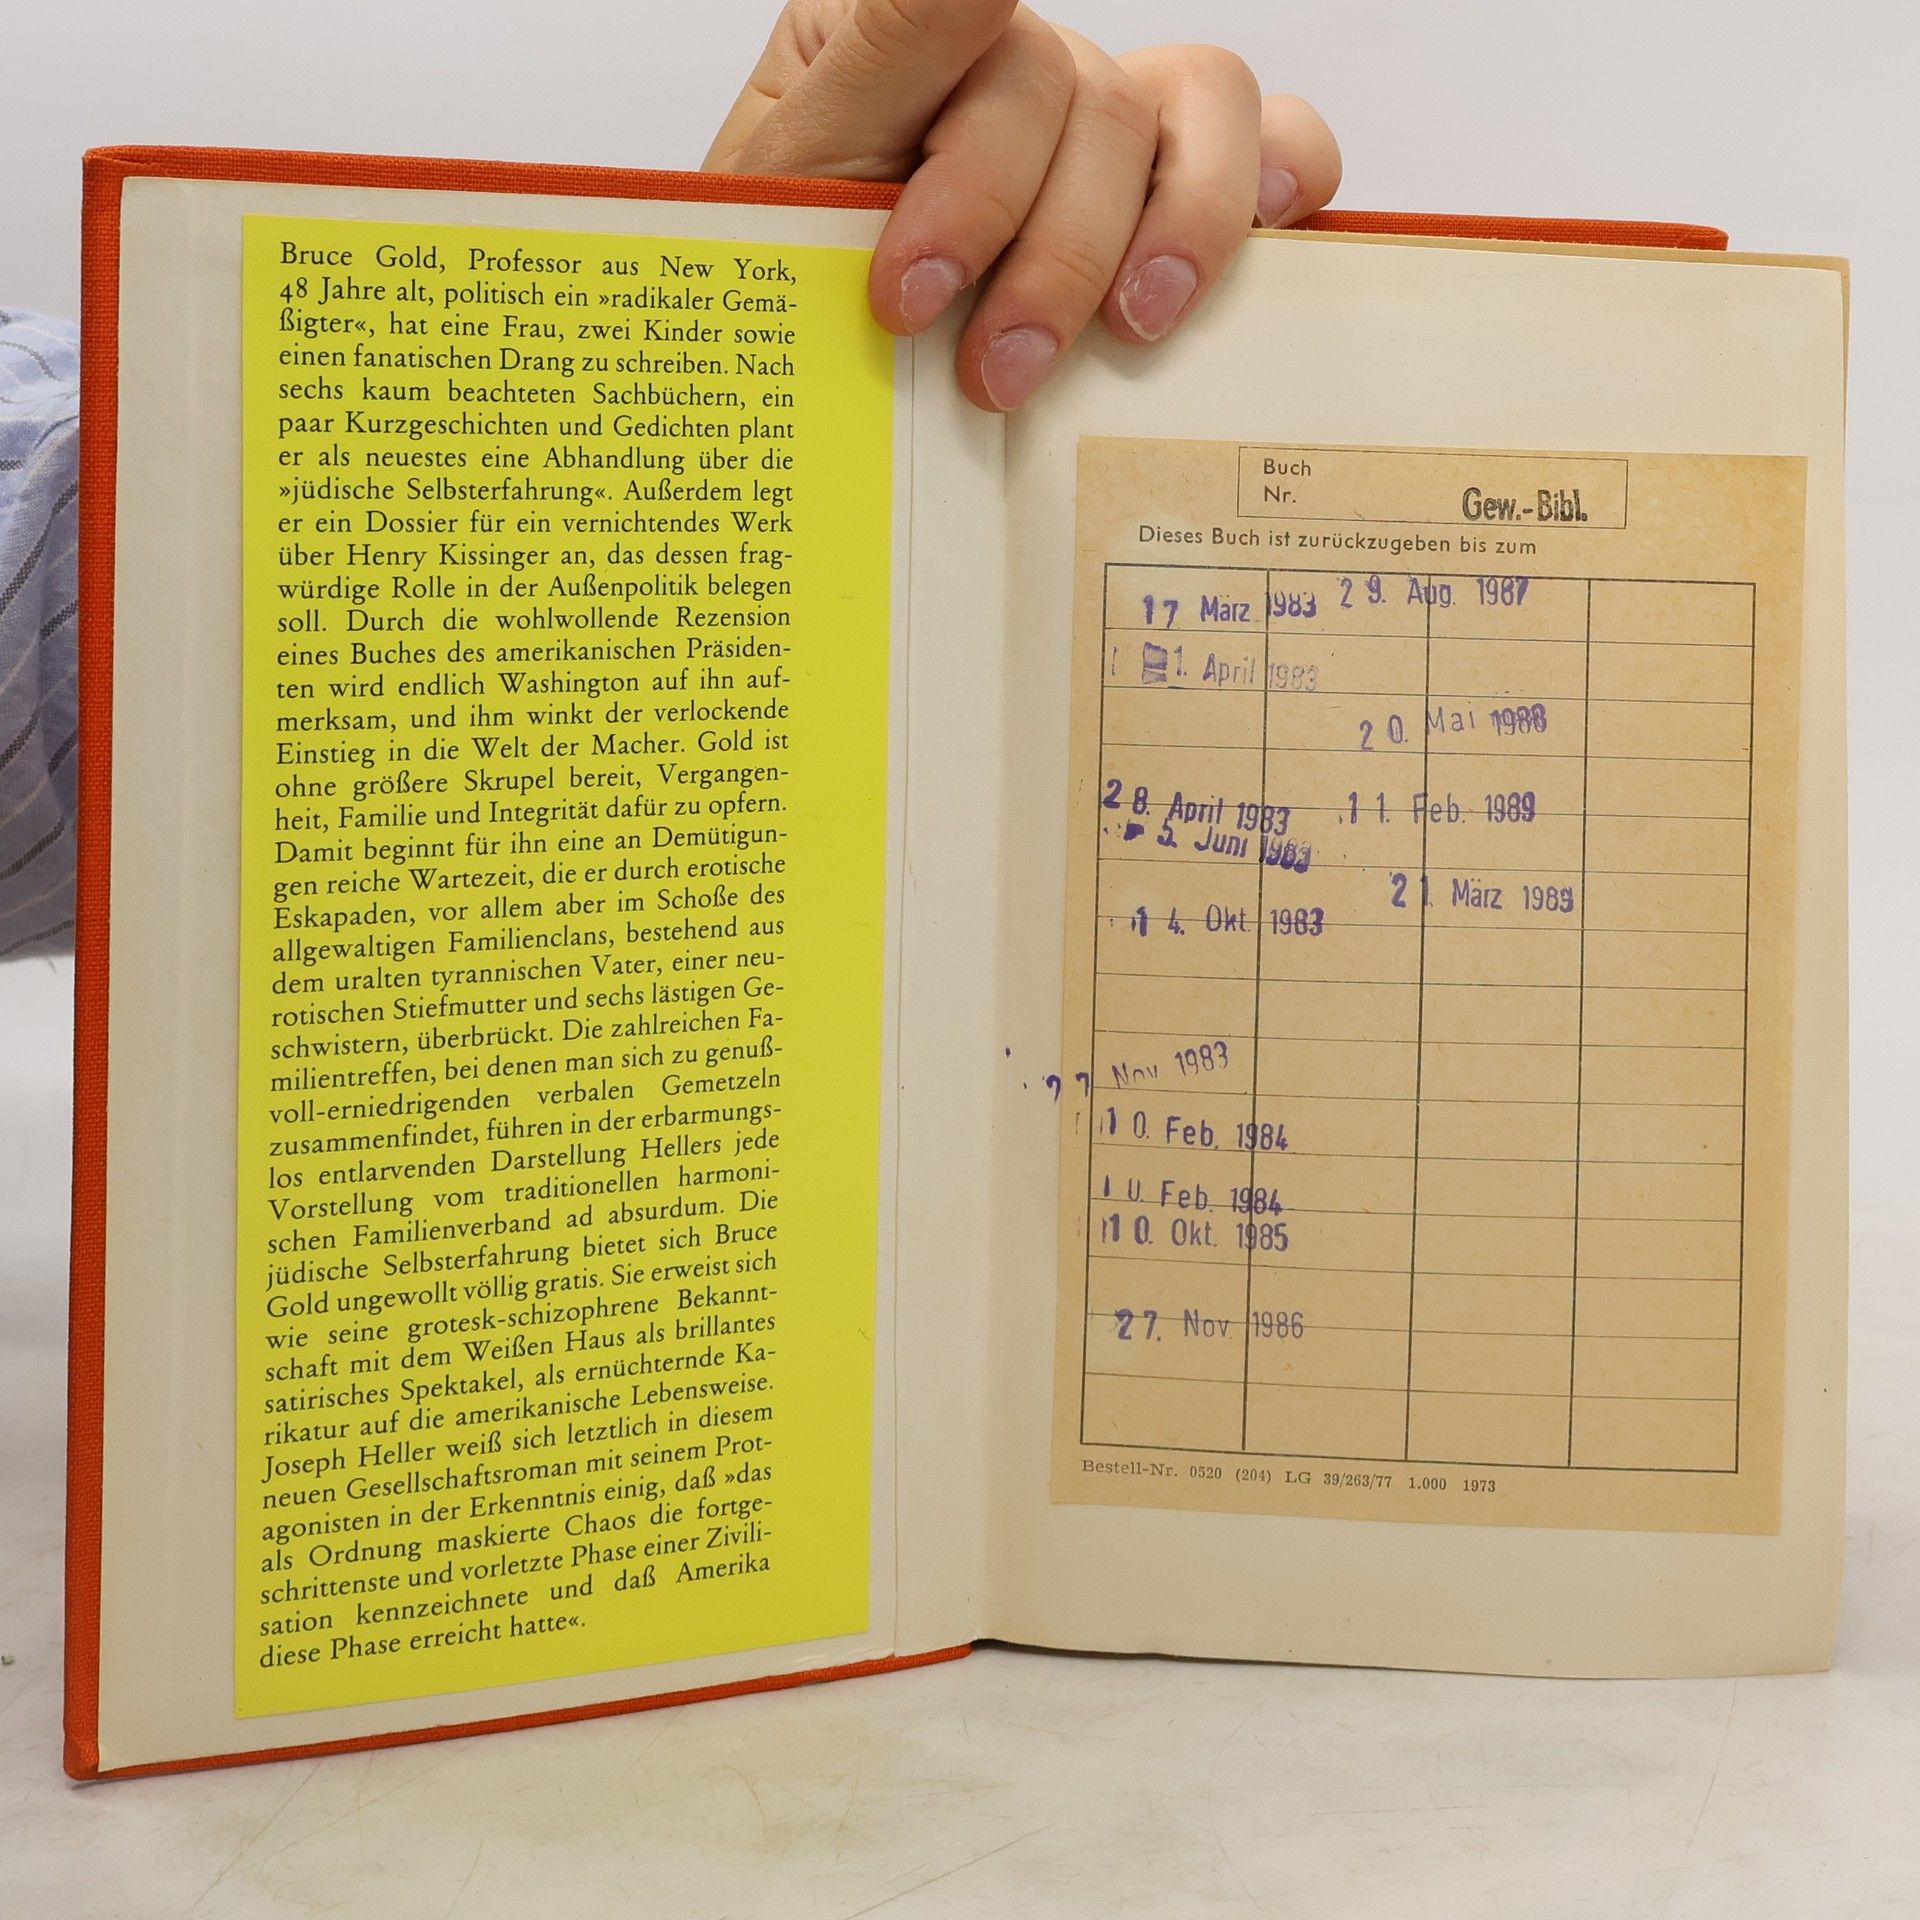 Bruce Gold, Professor aus New York,
48 Jahre alt, politisch ein »radikaler Gemä-
ßigter«, hat eine Frau, zwei Kinder sowie
einen fanatischen Drang zu schreiben. Nach
sechs kaum beachteten Sachbüchern, ein
paar Kurzgeschichten und Gedichten plant
er als neuestes eine Abhandlung über die
»jüdische Selbsterfahrung«. Außerdem legt
er ein Dossier für ein vernichtendes Werk
über Henry Kissinger an, das dessen frag-
würdige Rolle in der Außenpolitik belegen
soll. Durch die wohlwollende Rezension
eines Buches des amerikanischen Präsiden-
ten wird endlich Washington auf ihn auf-
merksam, und ihm winkt der verlockende
Einstieg in die Welt der Macher. Gold ist
ohne größere Skrupel bereit, Vergangen-
heit, Familie und Integrität dafür zu opfern.
Damit beginnt für ihn eine an Demütigun-
gen reiche Wartezeit, die er durch erotische
Eskapaden, vor allem aber im Schoße des
allgewaltigen Familienclans, bestehend aus
dem uralten tyrannischen Vater, einer neu-
rotischen Stiefmutter und sechs lästigen Ge-
schwistern, überbrückt. Die zahlreichen Fa-
milientreffen, bei denen man sich zu genuß-
voll-erniedrigenden verbalen Gemetzeln
zusammenfindet, führen in der erbarmungs-
los entlarvenden Darstellung Hellers jede
Vorstellung vom traditionellen harmoni-
schen Familienverband ad absurdum. Die
jüdische Selbsterfahrung bietet sich Bruce
Gold ungewollt völlig gratis. Sie erweist sich
wie seine grotesk-schizophrene Bekannt-
schaft mit dem Weißen Haus als brillantes
satirisches Spektakel, als ernüchternde Ka-
rikatur auf die amerikanische Lebensweise.
Joseph Heller weiß sich letztlich in diesem
neuen Gesellschaftsroman mit seinem Prot-
agonisten in der Erkenntnis einig, daß »das
als Ordnung maskierte Chaos die fortge-
schrittenste und vorletzte Phase einer Zivili-
sation kennzeichnete und daß Amerika
diese Phase erreicht hatte«.
Buch
Nr.
Gew.-Bibl.
Dieses Buch ist zurückzugeben bis zum
17 März 1983
29. Aug. 1987
1. April 1983
20. Mai 1988
28. April 1983
11. Feb. 1989
5. Juni 1983
21. März 1989
14. Okt. 1983
Nov 1983
10. Feb. 1984
10. Feb. 1984
10. Okt. 1985
27. Nov. 1986
Bestell-Nr. 0520 (204) LG 39/263/77 1.000 1973